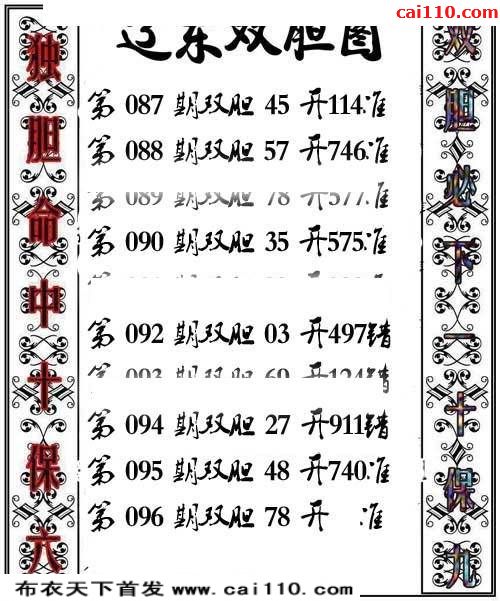 cai110.com
辽东双胆图
独胆命中十保六
第 087 期双胆 45 开114准
第 088 期双胆 57 开746准
第 089 期双胆 78 开577准
第 090 期双胆 35 开575准
第 092 期双胆 03 开497错
第 093 期双胆 69 开124错
第 094 期双胆 27 开911错
第 095 期双胆 48 开740准
第 096 期双胆 78 开 准
双胆必下一十保九
布衣天下首发 www.cai110.com